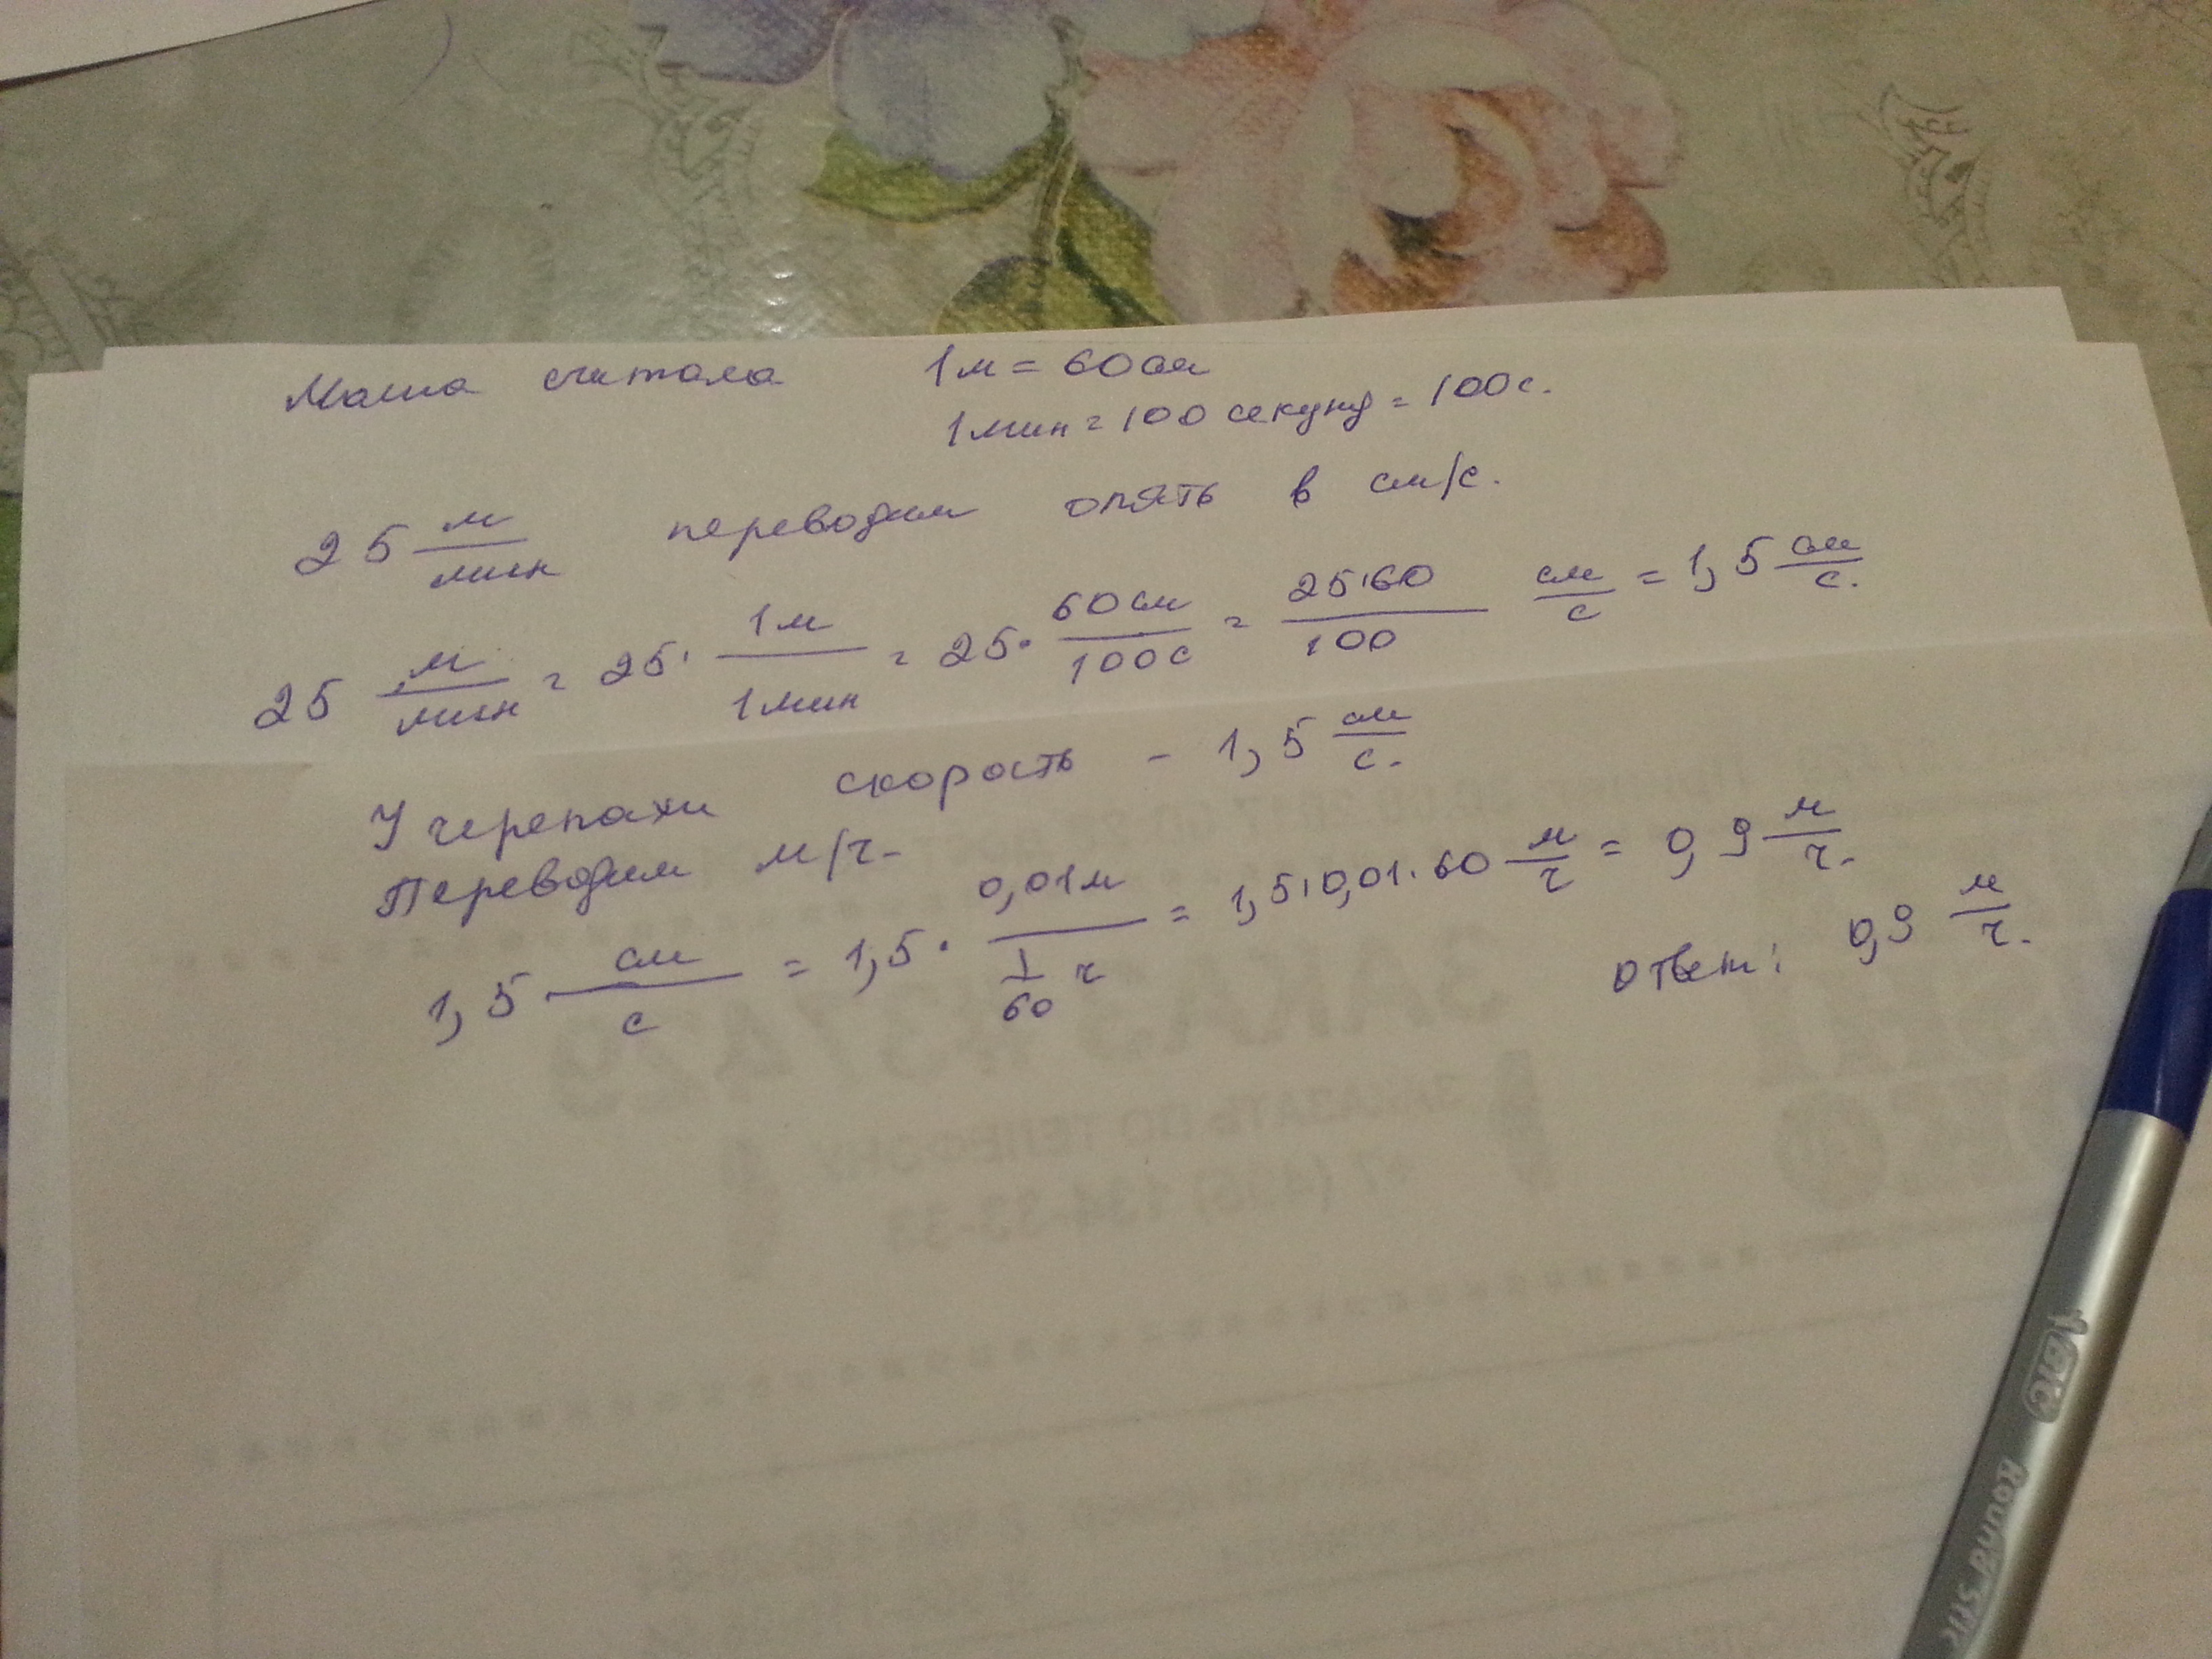 Маша считала 1м = 60см
1мин = 100 секунд = 100с.
25 м/мин переводим опять в см/с.
25 м/мин = 25· 1м/1мин = 25· 60см/100с = 25·60/100 см/с = 1,5 см/с.
У черепахи скорость - 1,5 см/с.
Переводим м/ч.
1,5 см/с = 1,5· 0,01м / 1/60 ч = 1,5·0,01·60 м/ч = 0,9 м/ч.
Ответ: 0,9 м/ч.
ЗАКАЗАТЬ ПО ТЕЛЕФОНУ
BIC
Round Stic